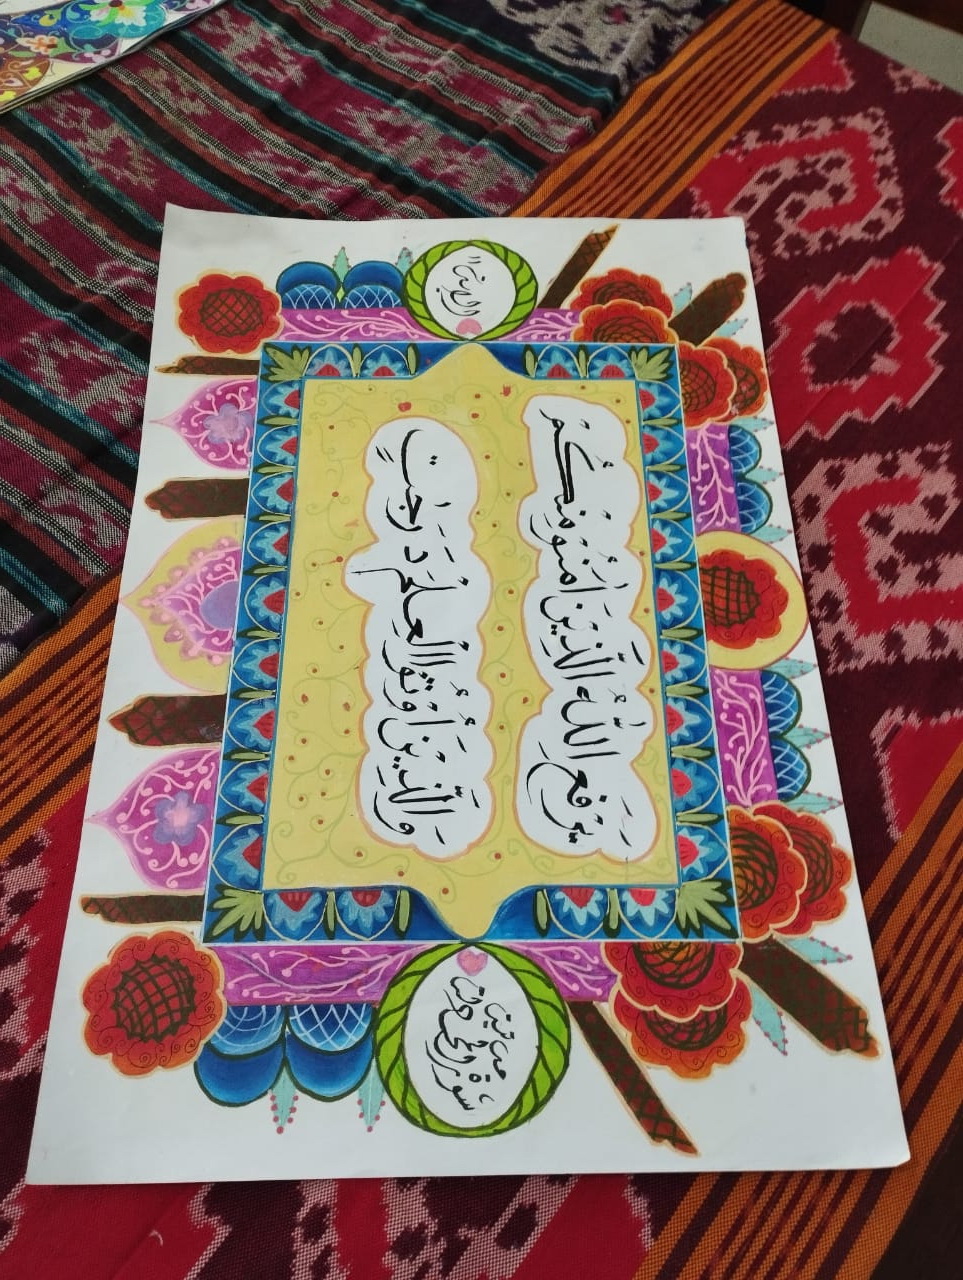 يَرْفَعِ اللّٰهُ الَّذِيْنَ أٰمَنُوْ مِنْكُمْ
وَالَّذِيْنَ أُوْتُوالْعِلْمَ دَرَجٰتٍ
سورة